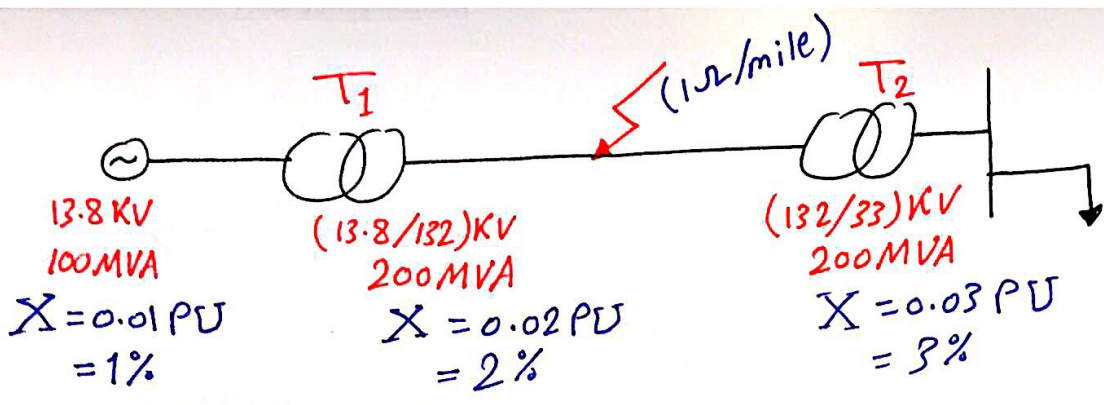 T1
(1Ω/mile)
T2
13.8 KV
100MVA
X=0.01 PU
=1%
(13.8/132)KV
200MVA
X =0.02PU
=2%
(132/33)KV
200MVA
X =0.03PU
=3%